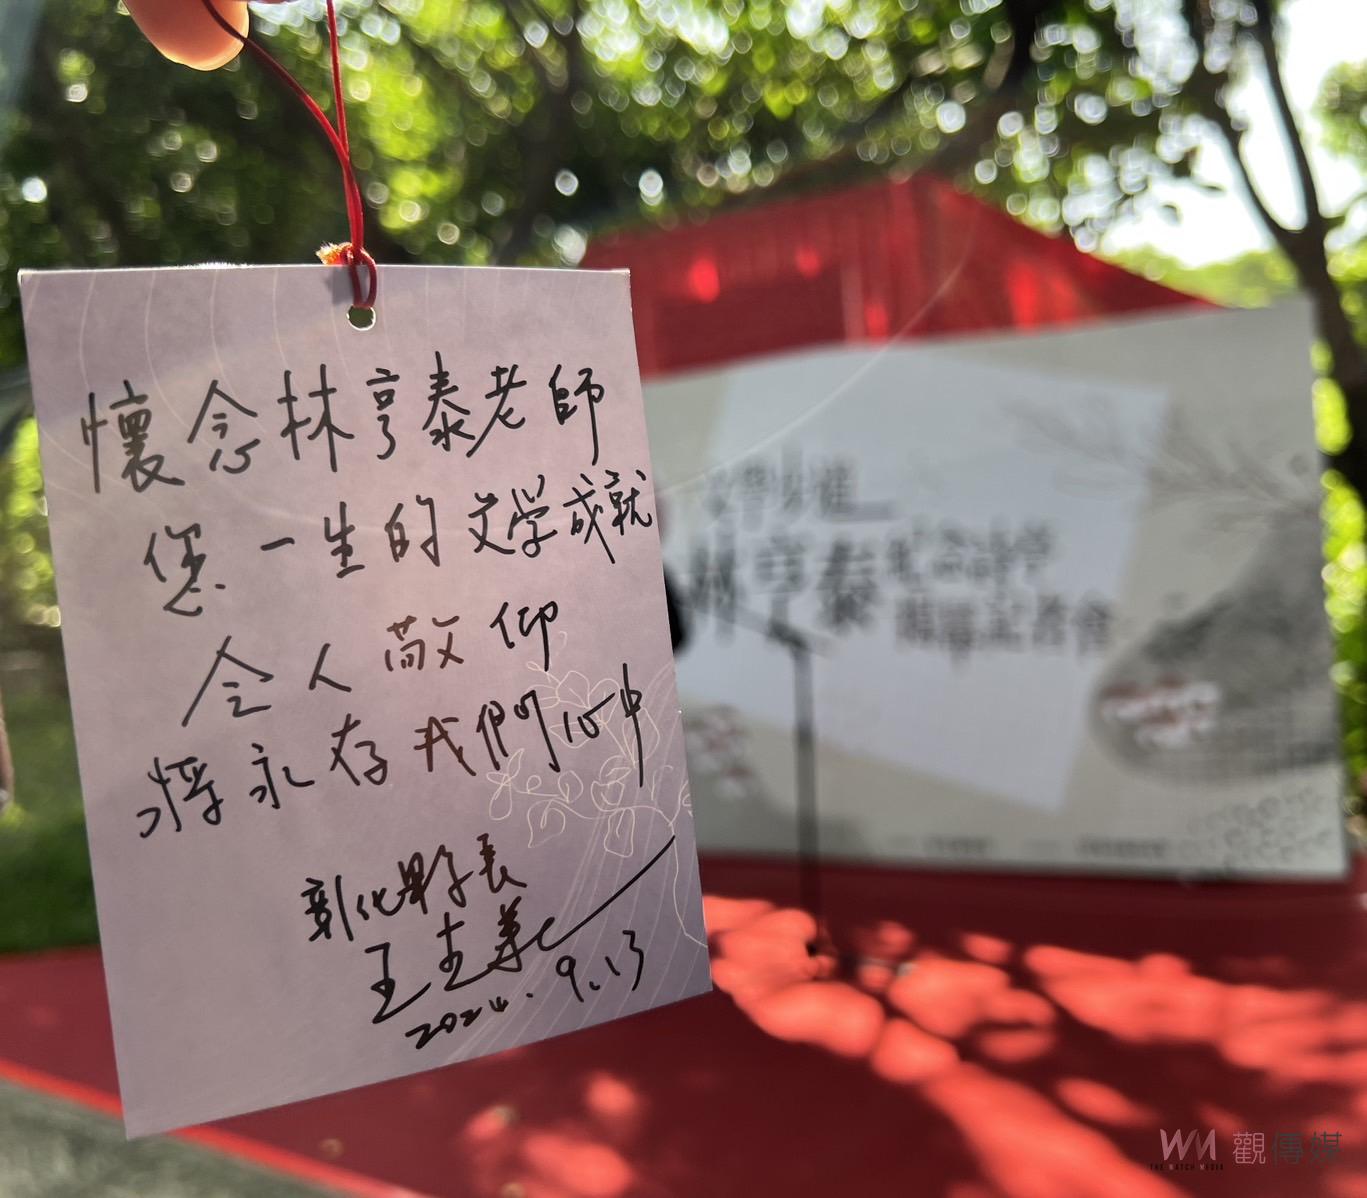 懷念林亨泰老師
您一生的文学成就
令人敬仰
将永存我們心中
彰化縣長
王惠美
2024.9.13
林亨泰紀念詩牆
揭幕記者會
WM 觀傳媒
THE WATCH MEDIA